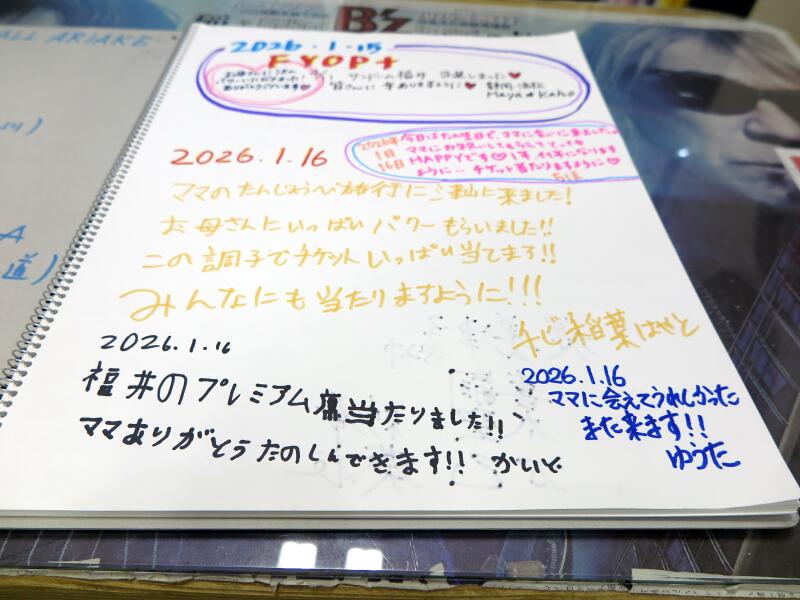 ALL ARIAKE
B'z
2026.1.15
FYOP+
ありがとうございます
サンドーム福井 当選しました♥
皆さんに幸ありますように♥
静岡 浜松
Maya★Kaho
2026年
1月
16日
今日はたん生日で、ママに会いに来ました。
HAPPYです♡
ように… チケット当たりますように♡
2026.1.16
ママのたんじょうび旅行に津山に来ました!
お母さんにいっぱいパワーもらいました!!
この調子でチケットいっぱい当てます!!
みんなにも当たりますように!!!
チビ稲葉はせと
2026.1.16
福井のプレミアム席当たりました!!
ママありがとうたのしんできます!! かいと
2026.1.16
ママに会えてうれしかった
また来ます!!
ゆうた
道)